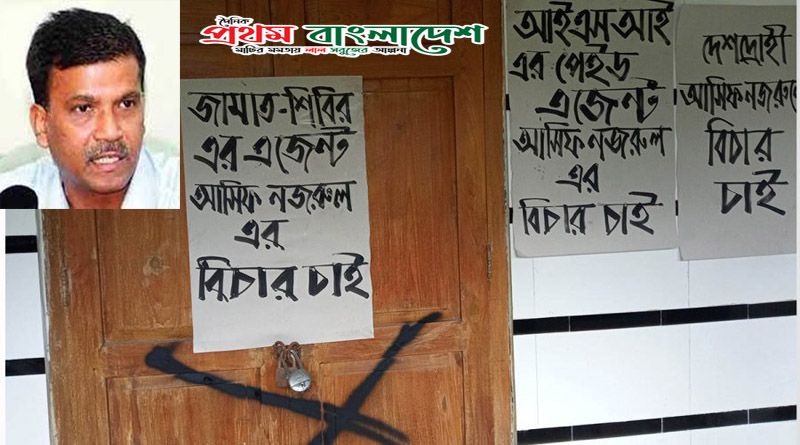 দৈনিক
প্রথম বাংলাদেশ
মাটির মমতায় লাল সবুজের আল্পনা
জামাত-শিবির
এর এজেন্ট
আসিফ নজরুল
এর
বিচার চাই
আইএসআই
এর পেইড
এজেন্ট
আসিফ নজরুল
এর
বিচার চাই
দেশদ্রোহী
আসিফ নজরুলের
বিচার
চাই